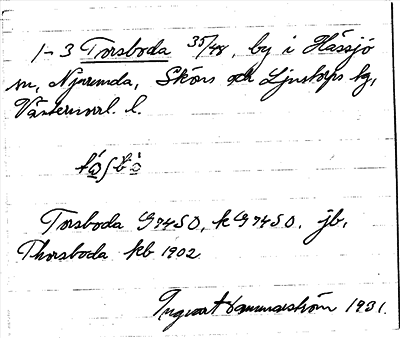 1-3 Torsboda 35/48, by i Hässjö
sn, Njurunda, Sköns och Ljustorps tg,
Västernorrl. l.
Torsboda G 74 S O, k G 74 S O. jb,
Thorsboda kb 1902
Ingvar Hammarström 1931.